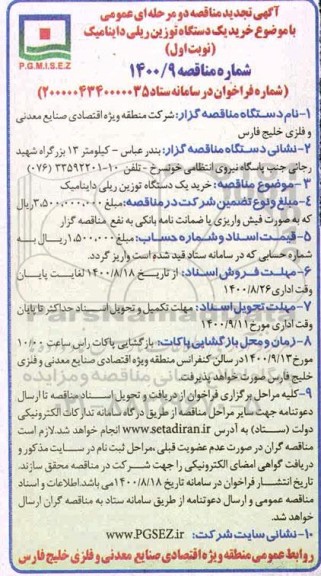 آگهی تجدید مناقصه دو مرحله ای عمومی
با موضوع خرید یک دستگاه توزین ریلی داینامیک
(نوبت اول)
P.G.M.I.S.E.Z
شماره مناقصه ۱۴۰۰/۹
(شماره فراخوان در سامانه ستاد ۲۰۰۰۰۰۴۳۴۰۰۰۰۰۳۵)
۱-نام دستگاه مناقصه گزار: شرکت منطقه ویژه اقتصادی صنایع معدنی
و فلزی خلیج فارس
۲-نشانی دستگاه مناقصه گزار: بندر عباس - کیلومتر ۱۳ بزرگراه شهید
رجائی جنب پاسگاه نیروی انتظامی خونسرخ - تلفن ۱۰-۳۳۵۹۲۲۰۱ (۰۷۶)
۳- موضوع مناقصه: خرید یک دستگاه توزین ریلی داینامیک
۴-مبلغ و نوع تضمین شرکت در مناقصه: مبلغ ۳,۵۰۰,۰۰۰,۰۰۰ ریال
که به صورت فیش واریزی یا ضمانت نامه بانکی به نفع مناقصه گزار
۵- قیمت اسناد و شماره حساب: مبلغ ۱,۵۰۰,۰۰۰ ریال به
شماره حسابی که در سامانه ستاد قید شده است واریز گردد.
۶-مهلت فروش اسناد: از تاریخ ۱۴۰۰/۸/۱۸ لغایت پایان
وقت اداری ۱۴۰۰/۸/۲۶
۷-مهلت تحویل اسناد: مهلت تکمیل و تحویل اسناد حداکثر تا پایان
وقت اداری مورخ ۱۴۰۰/۹/۱۱
۸-زمان و محل بازگشایی پاکات: بازگشایی پاکات راس ساعت ۱۰/۰۰
مورخ ۱۴۰۰/۹/۱۳ در سالن کنفرانس منطقه ویژه اقتصادی صنایع معدنی و فلزی
خلیج فارس صورت خواهد پذیرفت.
۹-کلیه مراحل برگزاری فراخوان از دریافت و تحویل اسناد مناقصه تا ارسال
دعوتنامه جهت سایر مراحل مناقصه از طریق درگاه سامانه تدارکات الکترونیکی
دولت (ستاد) به آدرس www.setadiran.ir انجام خواهد شد. لازم است
مناقصه گران در صورت عدم عضویت قبلی، مراحل ثبت نام در سایت مذکور و
دریافت گواهی امضای الکترونیکی را جهت شرکت در مناقصه محقق سازند.
تاریخ انتشار فراخوان در سامانه تاریخ ۱۴۰۰/۸/۱۸ می باشد. اطلاعات و اسناد
مناقصه عمومی و ارسال دعوتنامه از طریق سامانه ستاد به مناقصه گران ارسال
خواهد شد.
۱۰-نشانی سایت شرکت: www.PGSEZ.ir
روابط عمومی منطقه ویژه اقتصادی صنایع معدنی و فلزی خلیج فارس